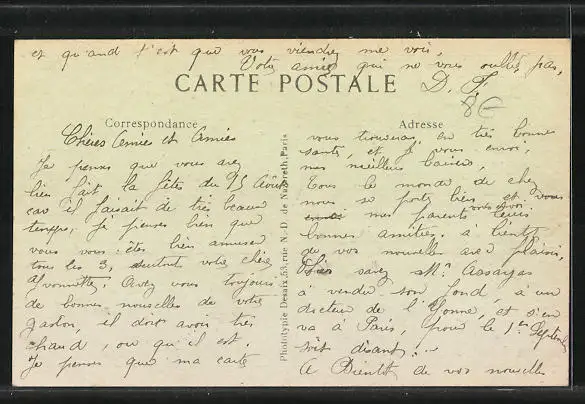 et quand t'est que vous viendrez me voir,
Votre amie qui ne vous oublie pas,
D. F.
CARTE POSTALE
8€
Correspondance
Adresse
Chères Amies et Amies
Je pense que vous avez
bien fait la fêtes du 15 Août
car il faisait de très beau
temps, je penses bien que
vous vous êtes bien amuser
tous les 3, surtout votre chère
Yvonnette. Avez vous toujours
de bonnes nouvelles de votre
gaston, il doit avoir très
chaud, ou qu'il est.
Je penses que ma carte
Phototypie Desaix, 53, rue N.-D. de Nazareth, Paris
vous trouveras en très bonne
santé, et je vous envoi,
mes meilleurs baisers,
Tous le monde de chez
nous se porte bien et vous
mes parents leurs
bonnes amitiés. à bientôt
de vos nouvelles avec plaisir,
savez Mr Assayas
a vendu son fond, à un
docteur de l'Yonne, et s'en
va à Paris, pour le 1er Septembre
soit disant.
A Bientôt de vos nouvelles